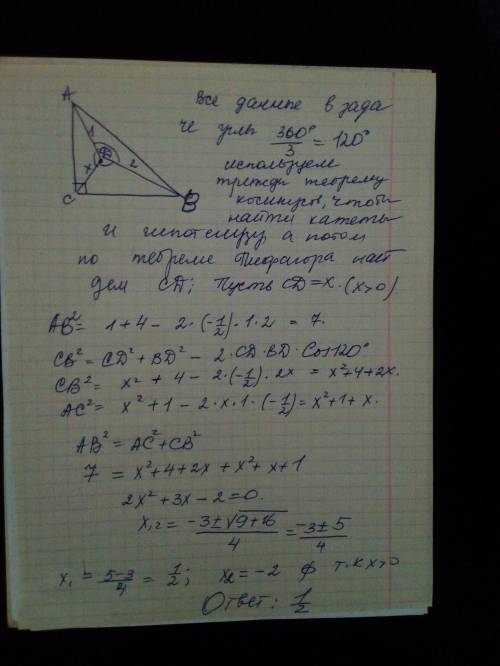 A
1
2
x
C
B
Все данные в зада
че углы 360°/3 = 120°
используем
трижды теорему
косинусов, чтобы
найти катеты
и гипотенузу, а потом
по теореме Пифагора най
дем CD; Пусть CD=x. (x>0).
AB² = 1+4 - 2·(-1/2)·1·2 = 7.
CB² = CD² + BD² - 2·CD·BD·Cos120°
CB² = x² + 4 - 2·(-1/2)·2x = x²+4+2x.
AC² = x² + 1 - 2·x·1·(-1/2) = x²+1+x.
AB² = AC² + CB²
7 = x²+4+2x + x²+x+1
2x² + 3x - 2 = 0.
x₁,₂ = (-3±√(9+16))/4 = (-3±5)/4
x₁ = (5-3)/4 = 1/2; x₂ = -2 ф т.к x>0
Ответ: 1/2